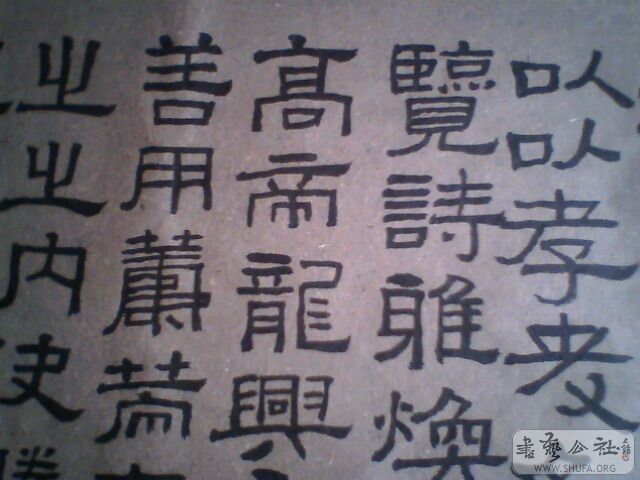 以以孝友
覽詩雅煥
高帝龍興
善用籌策
之之內決勝
書藝公社
WWW.SHUFA.ORG